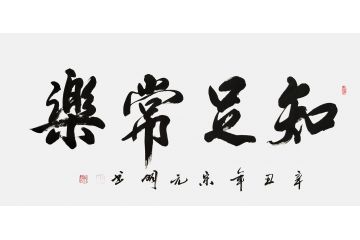 知足常樂
辛丑年宗元明書